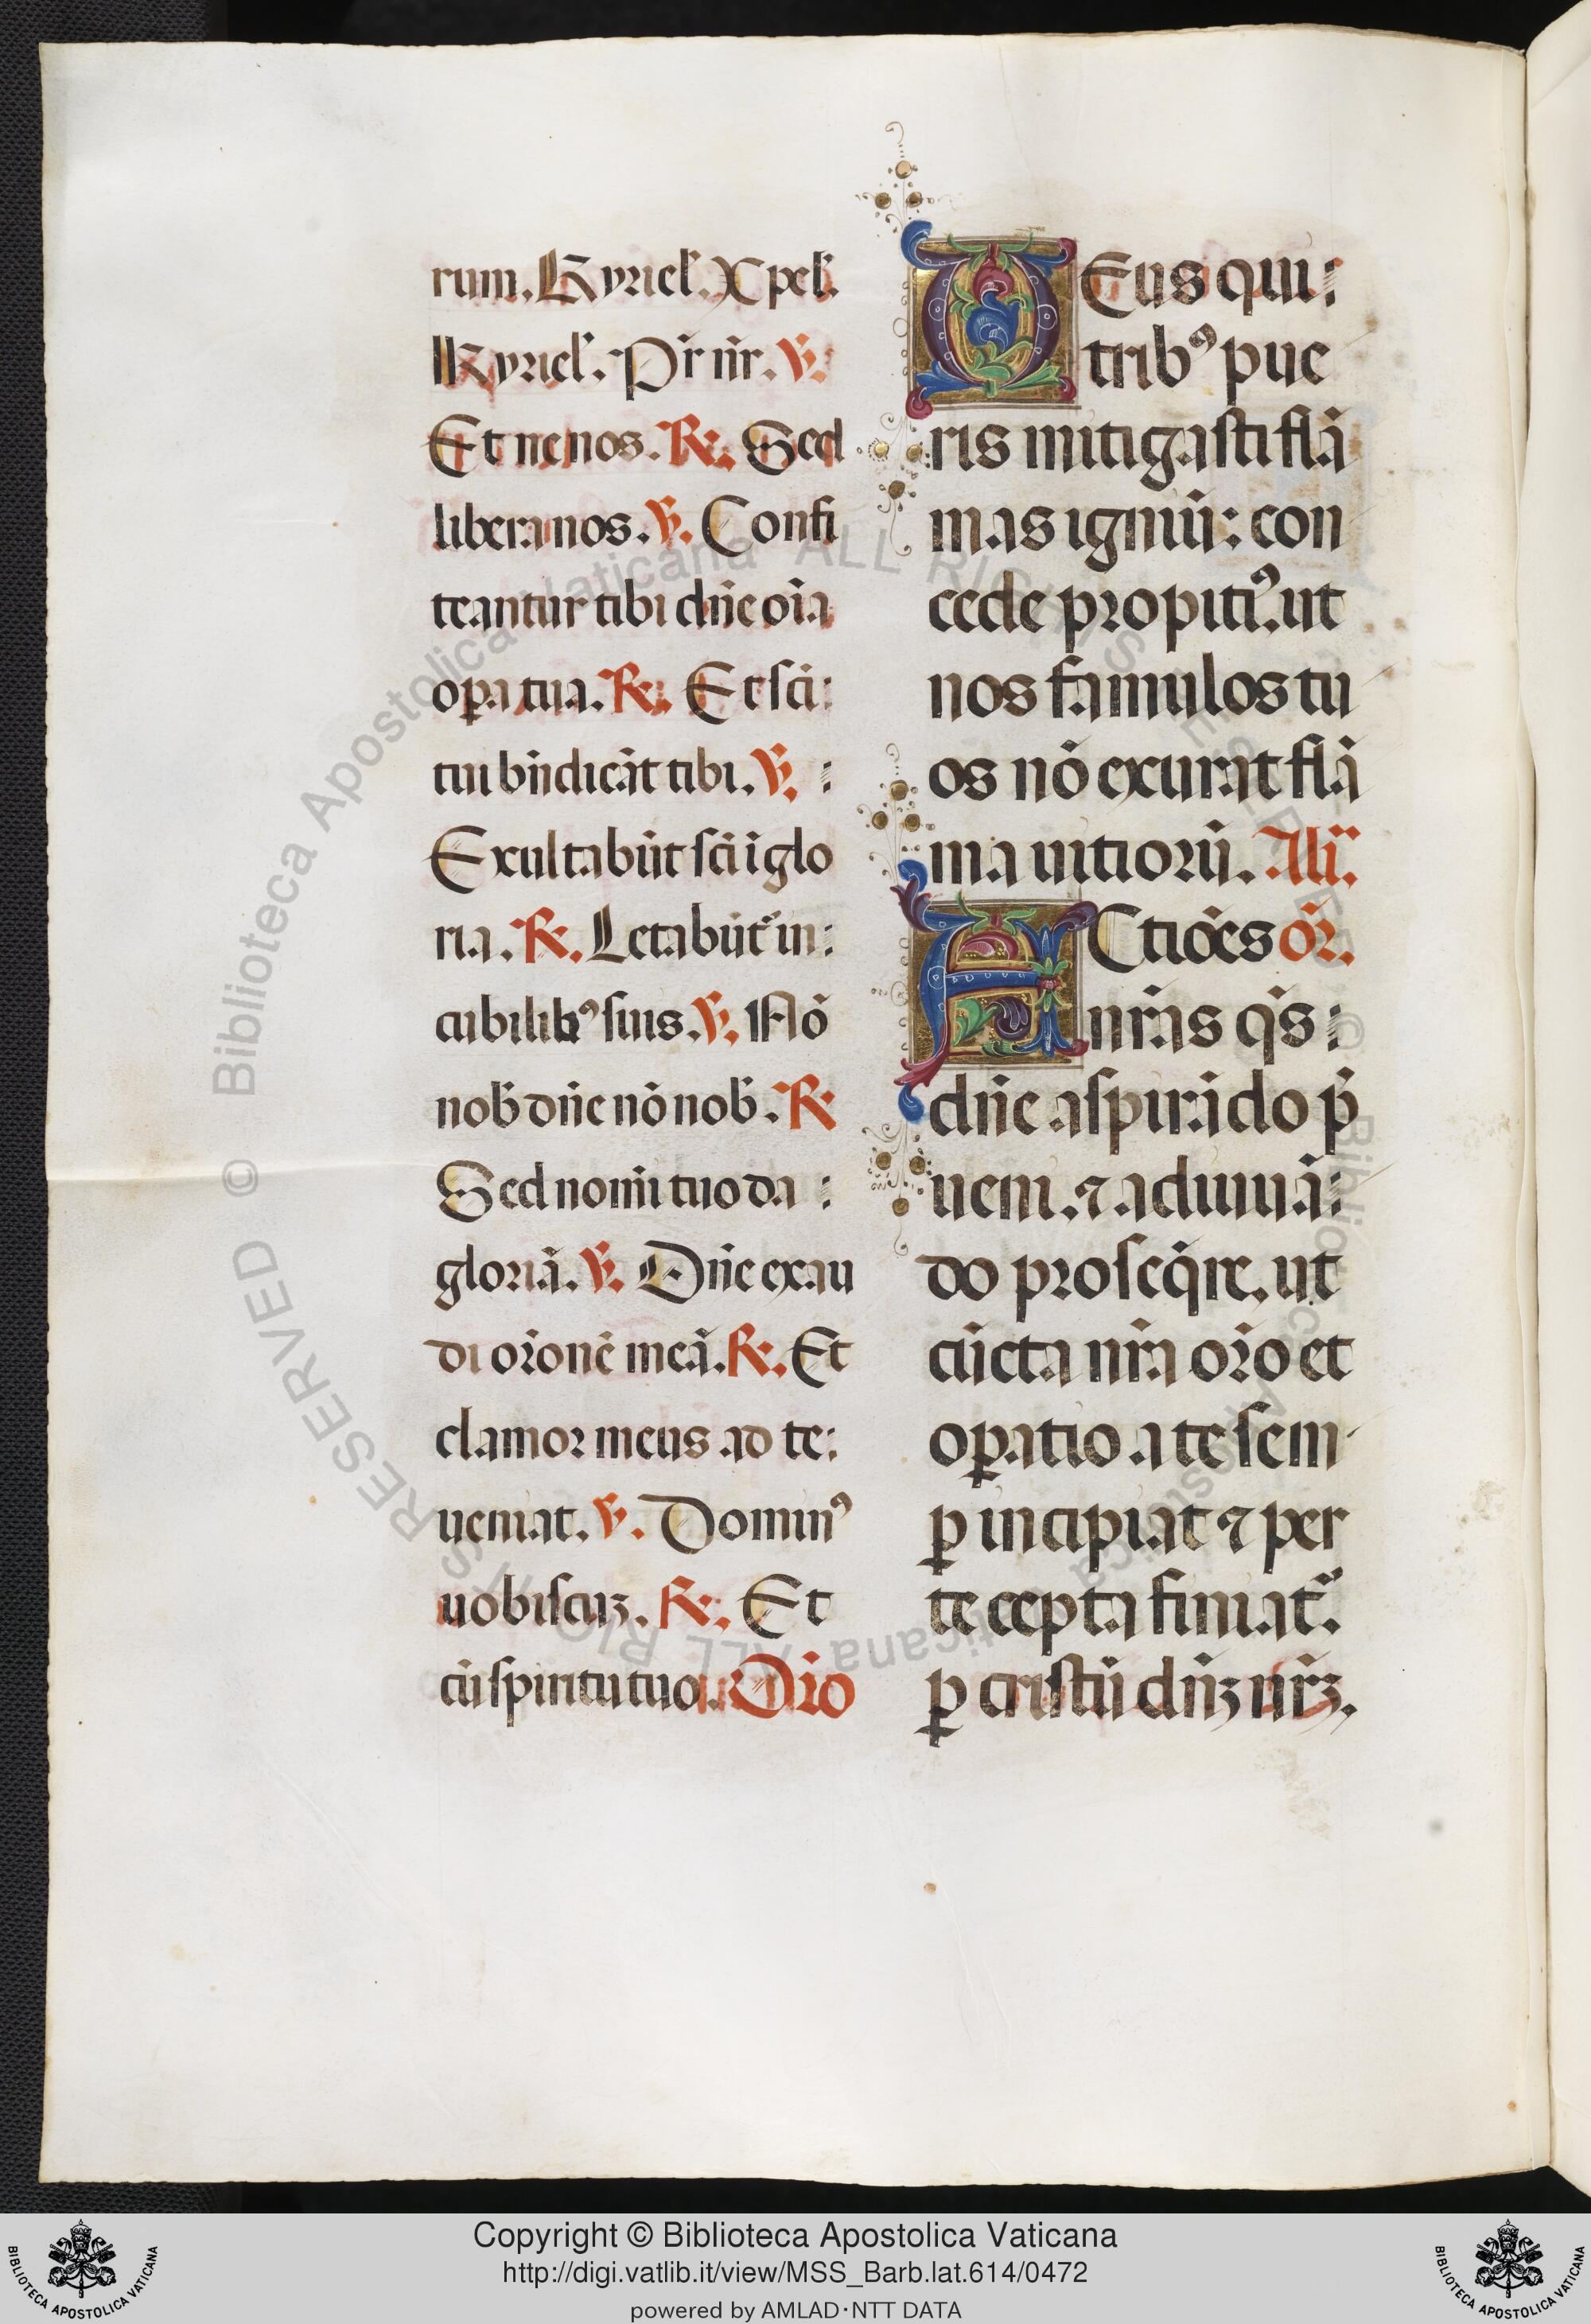 rum. Kyriel̃. Xpel̃.
Kyriel̃. Pr̃ nr̃. ℣.
Et ne nos. ℟. Sed
libera nos. ℣. Confi
teantur tibi dn̄e oīa
oꝑa tua. ℟. Et sc̄i:
tui bn̄dicāt tibi. ℣. :
Exultabūt sc̄i ī glo
ria. ℟. Letabūt᷑ in:
cubilibꝯ suis. ℣. Nō
nob̄ dn̄e nō nob̄. ℟
Sed nomī tuo da :
gloriā. ℣. Dn̄e exau
di or̄onē meā. ℟. Et
clamor meus ad te:
ueniat. ℣. Dominꝯ
uobiscuꝫ. ℟. Et
cū spiritu tuo. Or̄o
DEus qui:
tribꝯ pue
ris mitigasti flā
mas igniū: con
cede propitiꝯ. ut
nos famulos tu
os nō exurat flā
ma uitiorū. Alia.
ACtiōes or̄.
nr̄as qs̄:
dn̄e aspirādo p̄
ueni. ⁊ adiuuā:
do proseq̄re. ut
cūcta nr̄a or̄o et
oꝑatio a te sem
ꝑ incipiat ⁊ per
te cepta finiat᷑.
ꝑ cristū dn̄ꝫ nr̄ꝫ.
© Biblioteca Apostolica Vaticana ALL RIGHTS RESERVED
Copyright © Biblioteca Apostolica Vaticana
http://digi.vatlib.it/view/MSS_Barb.lat.614/0472
powered by AMLAD·NTT DATA
BIBLIOTECA APOSTOLICA VATICANA
BIBLIOTECA APOSTOLICA VATICANA